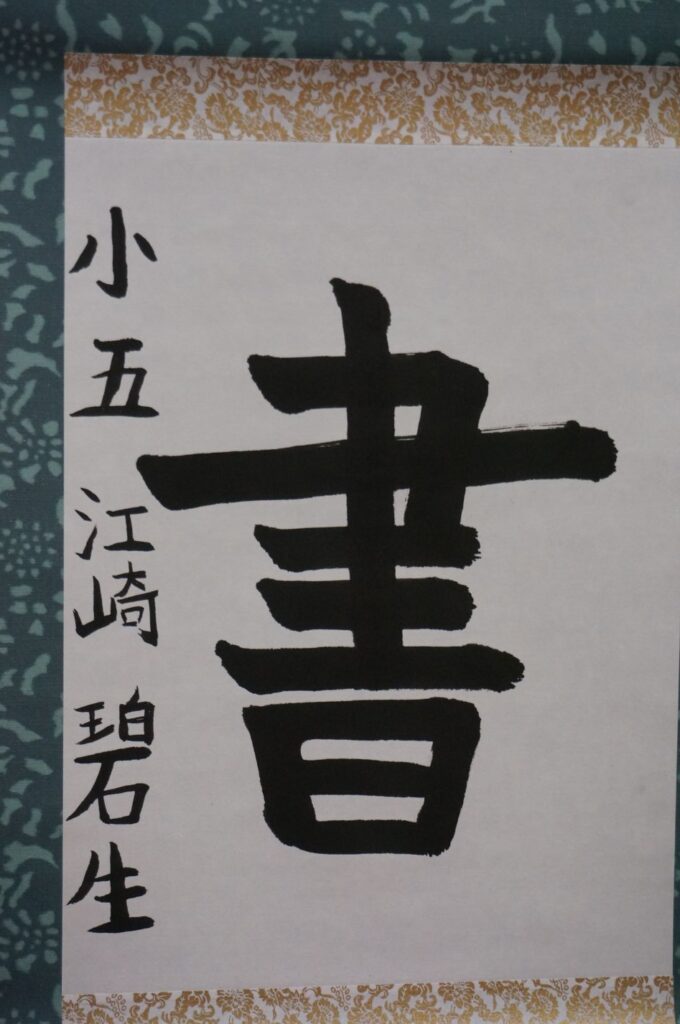 書
小五 江崎 碧生